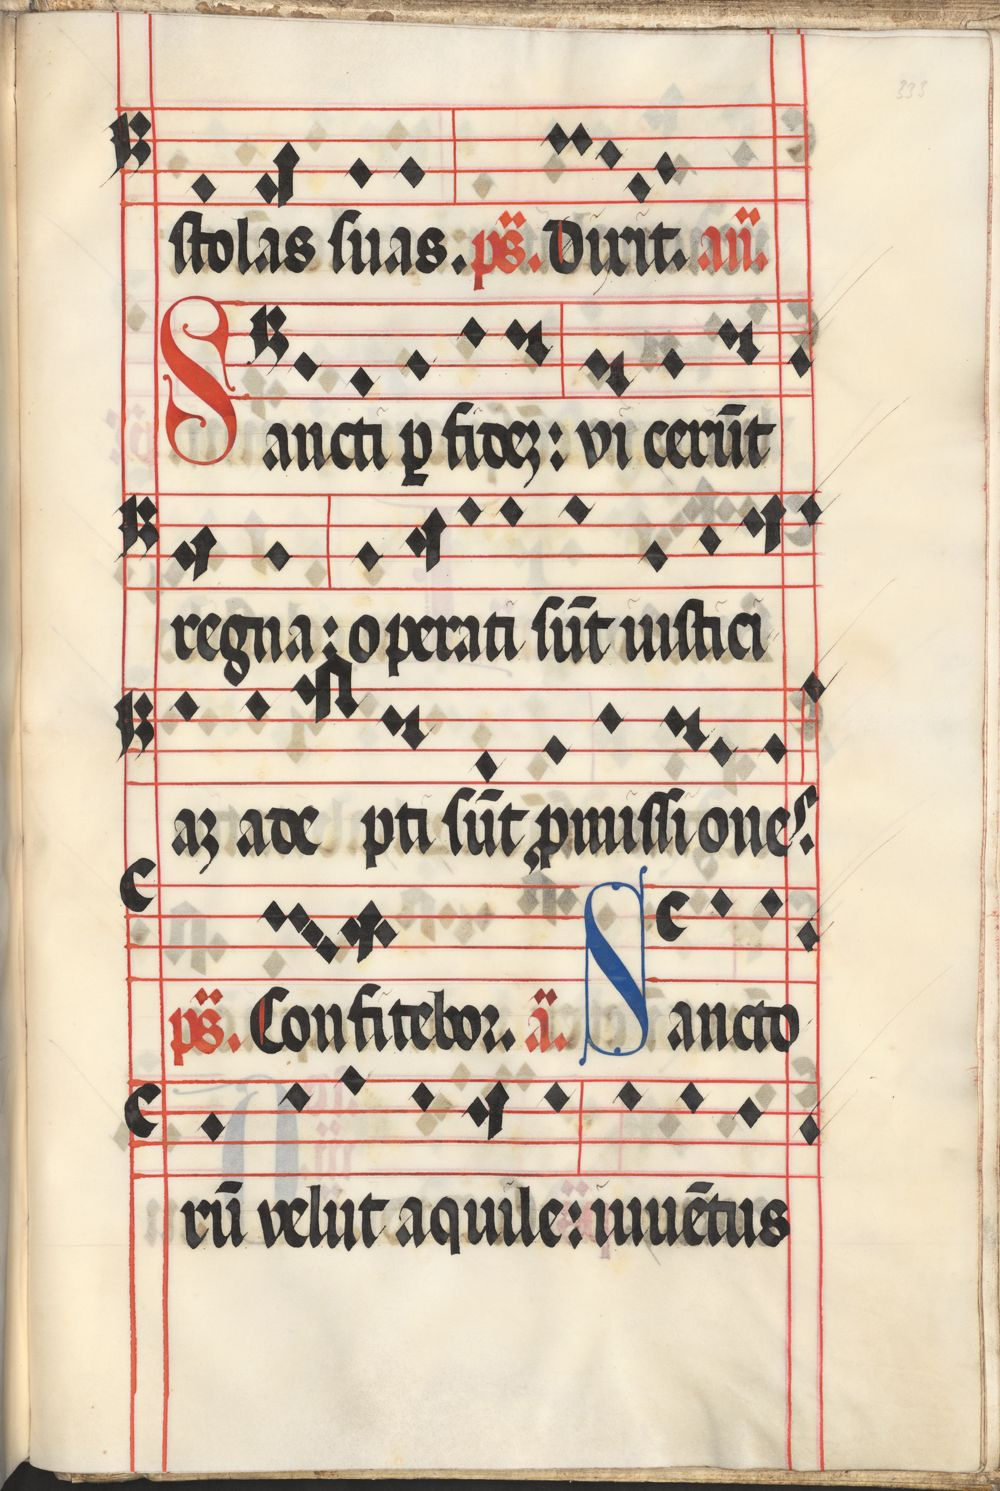 333
stolas suas. ps̄. Dixit. an̄.
Sancti ꝑ fidez: vi cerūt
regna: operati sūt iustici
az ade pti sūt ꝓmissiones.
ps̄. Confitebor. ā. Sancto
rū velut aquile: iuuētus